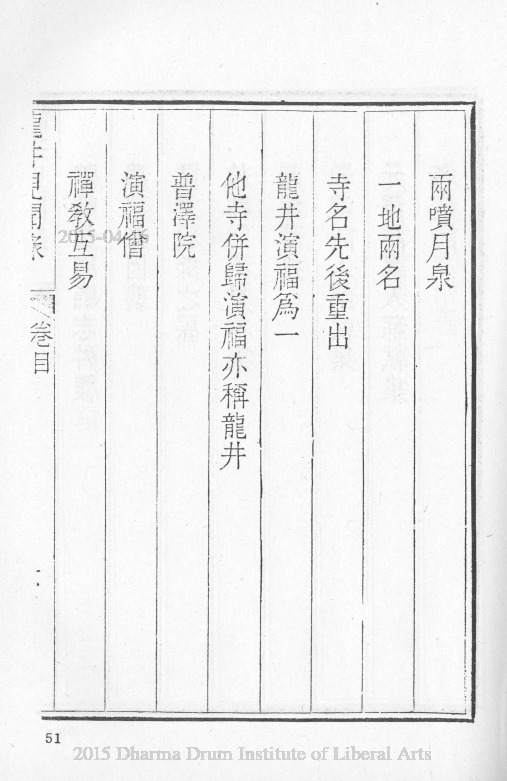 兩噴月泉
一地兩名
寺名先後重出
龍井演福爲一
他寺併歸演福亦稱龍井
普澤院
演福僧
禪教互易
龍井見聞錄
卷目
51
2015-04-16
2015 Dharma Drum Institute of Liberal Arts